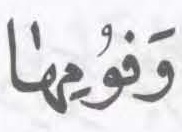 وَفوُمِهٰا